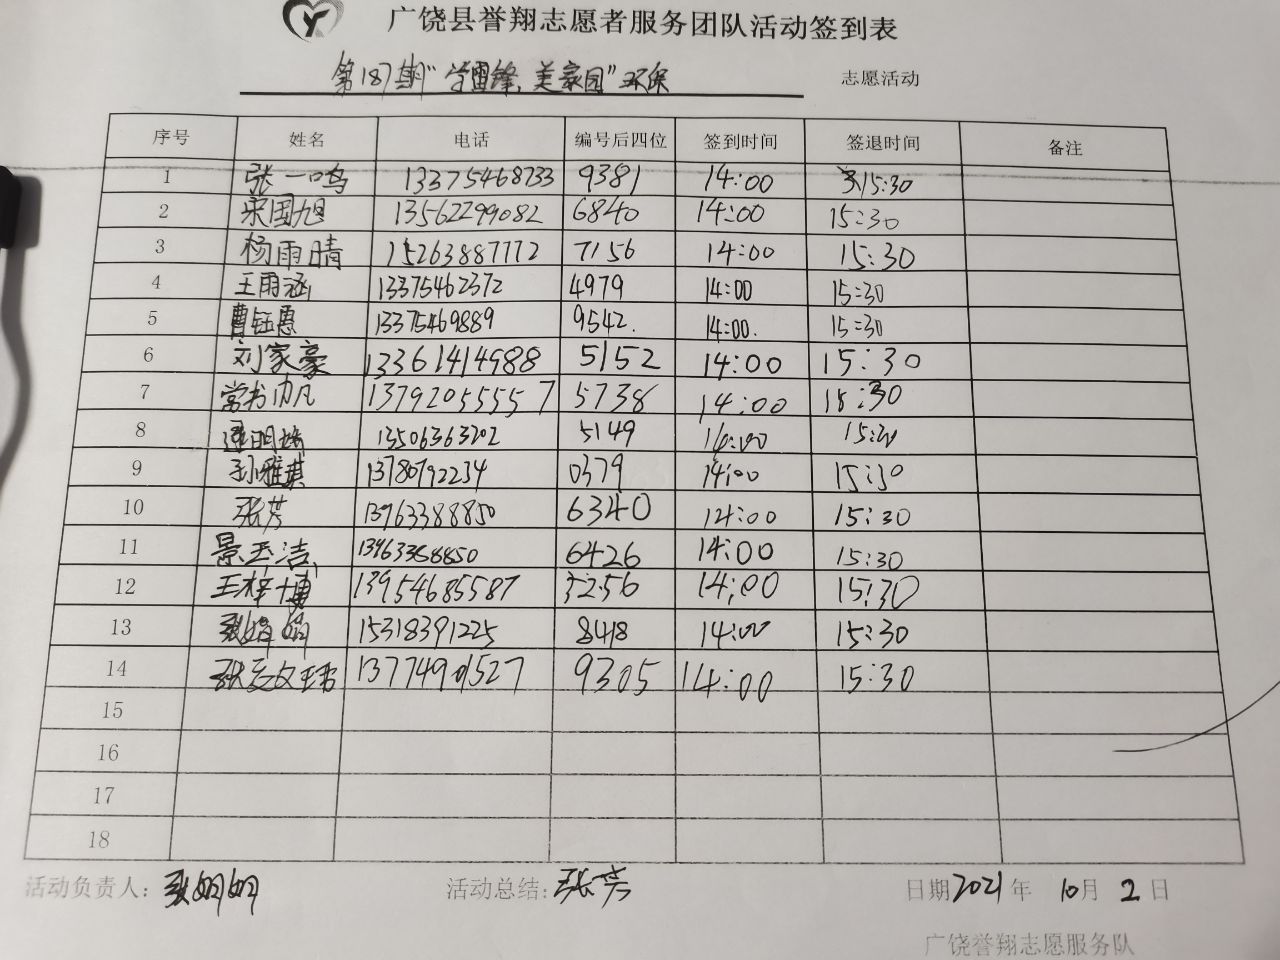 广饶县誉翔志愿者服务团队活动签到表
第187期“学雷锋,美家园”环保 志愿活动
序号 姓名 电话 编号后四位 签到时间 签退时间 备注
1 张一鸣 13375468733 9381 14:00 15:30
2 宋国旭 13562299082 6840 14:00 15:30
3 杨雨晴 15263887772 7156 14:00 15:30
4 王雨涵 13375462372 4979 14:00 15:30
5 曹钰惠 13375469889 9542. 14:00. 15:30
6 刘家豪 13361414988 5152 14:00 15:30
7 常书凡 13792055557 5738 14:00 15:30
8 13506363202 5149 14:00 15:30
9 孙雅琪 13780792234 0379 14:00 15:30
10 张芳 13963388850 6340 14:00 15:30
11 景玉洁 13963388850 6426 14:00 15:30
12 王梓博 13954685587 3256 14:00 15:30
13 张娟娟 15318391225 8418 14:00 15:30
14 张 13774901527 9305 14:00 15:30
15
16
17
18
活动负责人: 张娟娟 活动总结: 张芳 日期 2021 年 10 月 2 日
广饶誉翔志愿服务队